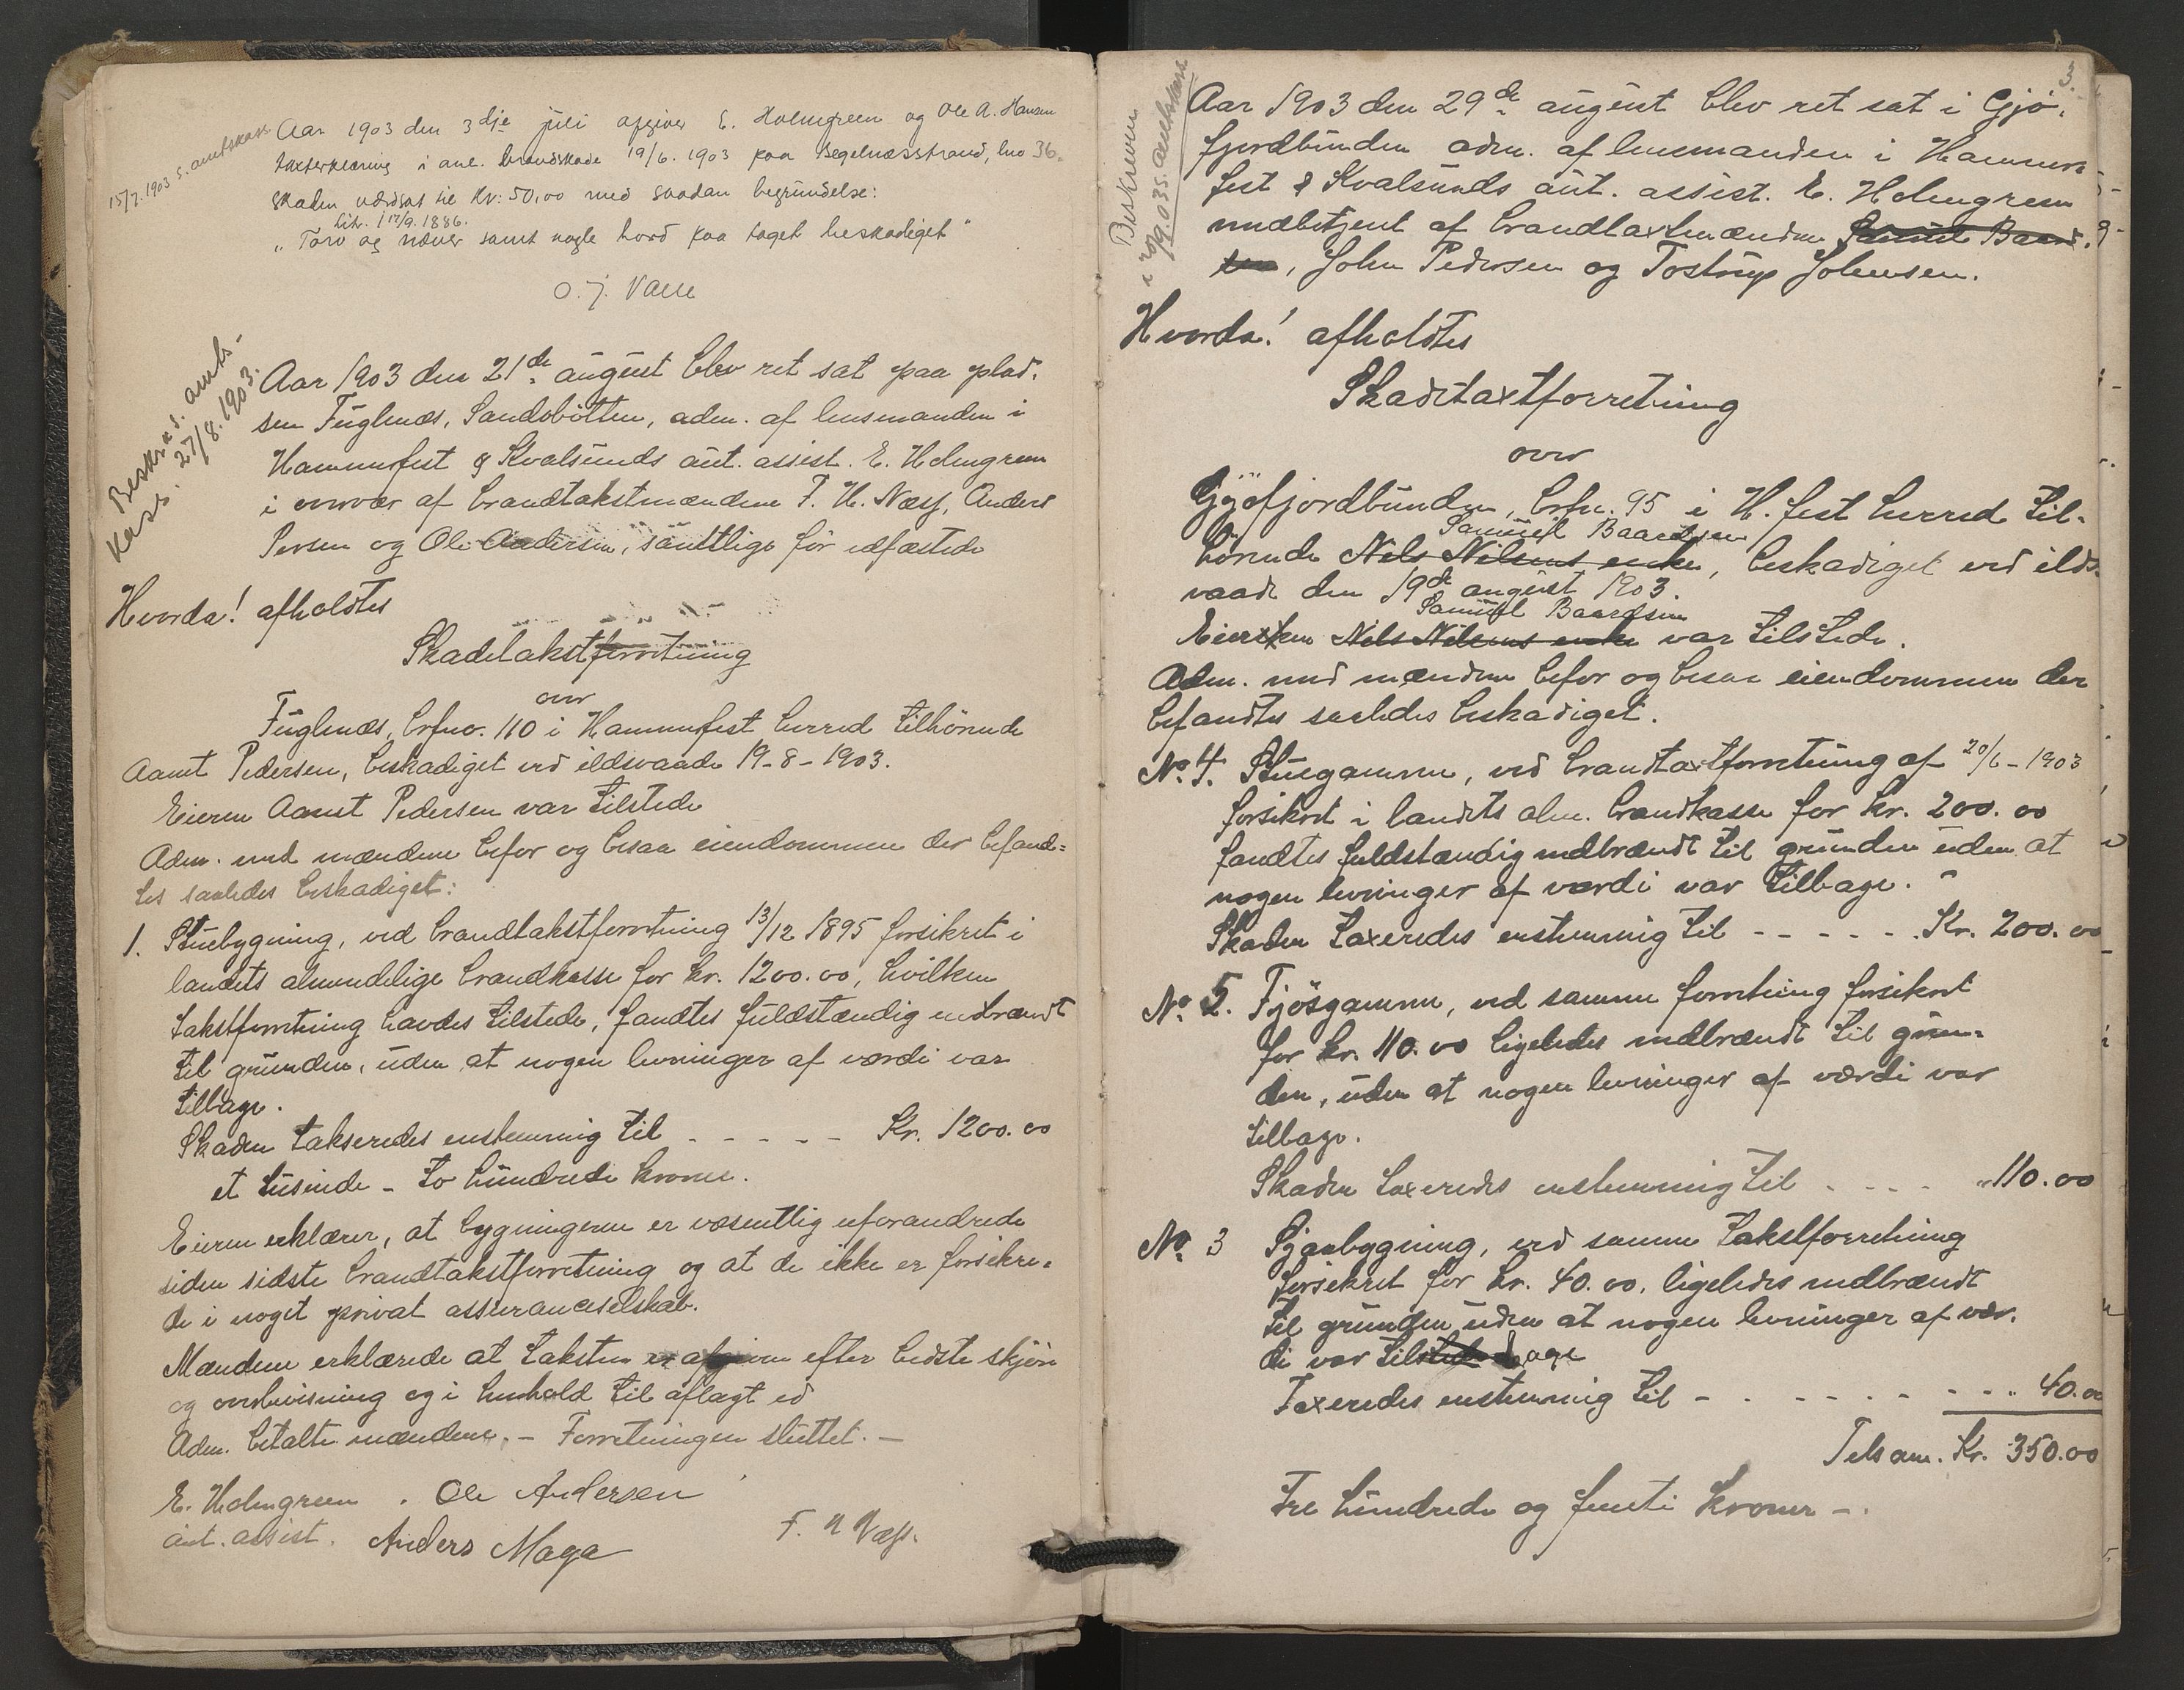 15/7.1903 s. amtskass.
Aar 1903 den 3dje juli afgiver E. Holmgreen og Ole A. Hansen
taxterklæring i anl. brandskade 19/6. 1903 paa Begelnæsstrand, bno 36.
skaden værdsat til Kr: 50,00 med saadan begrundelse:
Litr. 1 17/9. 1886.
"Torv og næver samt nogle bord paa taget beskadiget"
O. J. Valle
Beskr. s. amts-
kass. 27/8. 1903.
Aar 1903 den 21de august blev ret sat paa plad-
sen Fuglenæs, Sandobotten, adm. af lensmanden i
Hammerfest & Kvalsunds aut. assist. E. Holmgreen
i overvær af brandtakstmændene F. H. Næss, Anders
Persen og Ole Andersen, samtlige før edfæstede
Hvorda! afholdtes
Skadetakstforretning
over
Fuglenæs, brfno. 110 i Hammerfest herred tilhörende
Aamt Pedersen, beskadiget ved ildsvaade 19-8-1903.
Eieren Aamt Pedersen var tilstede
Adm. med mændene befor og besaa eiendommen der befand-
tes saaledes beskadiget:
1. Stuebygning, ved brandtakstforretning 13/12 1895 forsikret i
landets almindelige brandkasse for kr. 1200.00, hvilken
takstforretning havdes tilstede, fandtes fuldstændig nedbrændt
til grunden, uden at nogen levninger af værdi var
tilbage.
Skaden takseredes enstemmig til - - - - - Kr. 1200.00
et tusinde - to hundrede kroner.
Eieren erklærer, at bygningerne er væsentlig uforandrede
siden sidste brandtakstforretning og at de ikke er forsikre-
de i noget privat assuranceselskab.
Mændene erklærede at taksten er afgiven efter bedste skjøn
og overbevisning og i henhold til aflagt ed
Adm. betalte mændene. - Forretningen sluttet. -
E. Holmgreen . Ole Andersen
aut. assist. Anders Maga F. H Næss.
3.
Beskreven
Aar 1903 den 29de august blev ret sat i Gjø-
fjordbunden adm. af lensmanden i Hammer-
fest & Kvalsunds aut. assist. E. Holmgreen
medbetjent af brandtaxtmændene Samuel Baard-
sen, John Pedersen og Tostrup Johnsen.
Hvorda! afholdtes
Skadetaxtforretning
over
Gjøfjordbunden, brfn. 95 i H.fest herred til-
Samuel Baardsen
hørende Nils Nilsens enke, beskadiget ved ilds-
vaade den 19de august 1903.
Samuel Baardsen
Eieren Nils Nilsens enke var tilstede.
Adm. med mændene befor og besaa eiendommen der
befandtes saaledes beskadiget.
No. 4. Stuegamme, ved brandtaxtforretning af 20/6-1903
forsikret i landets alm. brandkasse for kr. 200.00
fandtes fuldstændig nedbrændt til grunden uden at
nogen levninger af værdi var tilbage.
Skaden taxeredes enstemmig til - - - - - Kr. 200.00
No. 5. Fjösgamme, ved samme forretning forsikret
for kr. 110.00 ligeledes nedbrændt til grun-
den, uden at nogen levninger af værdi var
tilbage.
Skaden taxeredes enstemmig til - - - - " 110.00
No. 3 Sjaabygning, ved samme takstforretning
forsikret for kr. 40.00, ligeledes nedbrændt
til grunden uden at nogen levninger af vær-
di var tilstede bage
Taxeredes enstemmig til - - - - - - - - " 40.00
Tilsam. Kr. 350.00
Tre hundrede og femti kroner -.